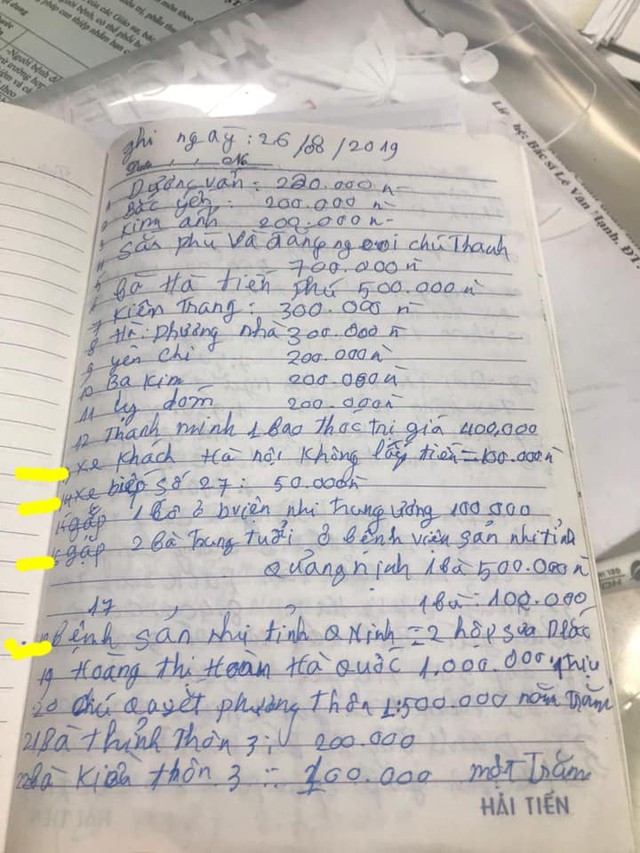 ghi ngày: 26/08/2019
1 Dương văn: 220.000 n
2 Bắc yến: 200.000 n
3 Kim anh 200.000 n
4 Sản phụ và đẳng người chú Thanh
5 700.000 n
6 Bà Hà tiến phú 500.000 n
7 Kiên Trang: 300.000 n
8 Hà: phương nha 300.000 n
9 yến chi 200.000 n
10 Ba Kim 200.000 n
11 ly dom 200.000 n
12 Thanh minh 1 Bao Thóc trị giá 400,000
xe khách Hà nội không lấy tiền = 100.000 n
14 xe biển số 27: 50.000 n
gặp 1 cô ở bviện nhi trung ương 100 000
gặp 2 bà trung tuổi ở bệnh viện sản nhi tỉnh
Quảng ninh 1 bà 500.000 n
17 , , 1 bà: 100.000
Bệnh sản nhi tỉnh QNinh = 2 hộp sữa
19 Hoàng thị Hoàn Hà Quốc 1.000.000 1 Triệu
20 chú Quyết phương thôn 1: 500.000 năm Trăm
21 Bà thịnh Thôn 3: 200.000
22 Bà Kiều thôn 3 : 100.000 một Trăm
HẢI TIẾN
Bác sĩ Lê Văn Hạnh, ĐT